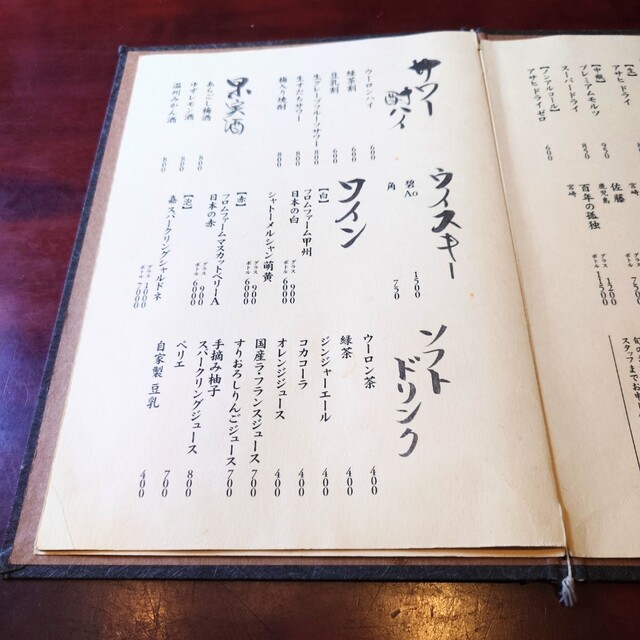 【生】
アサヒ ドライ
【中瓶】
プレミアムモルツ 950
スーパードライ 850
【ノンアルコール】
アサヒドライゼロ 600
宮崎
佐藤
鹿児島
百年の孤独
宮崎
750
1200
1500
スタッフまでお申
サワー
酎ハイ
ウーロンハイ 600
緑茶割 600
豆乳割 600
生グレープフルーツサワー 800
生すだちサワー 800
梅入り焼酎 800
果実酒
あらごし梅酒 800
ゆずレモン酒 800
温州みかん酒 800
ウイスキー
碧Ao 1500
角 750
ワイン
【白】
フロムファーム甲州
日本の白 グラス 900 ボトル 6000
シャトーメルシャン萌黄 グラス 900 ボトル 6000
【赤】
フロムファームマスカットベリーA
日本の赤 グラス 900 ボトル 6000
【泡】
嘉 スパークリングシャルドネ グラス 1000 ボトル 7000
ソフト
ドリンク
ウーロン茶 400
緑茶 400
ジンジャーエール 400
コカコーラ 400
オレンジジュース 400
国産ラ・フランスジュース 700
すりおろしりんごジュース 700
手摘み柚子
スパークリングジュース 800
ペリエ 700
自家製豆乳 400